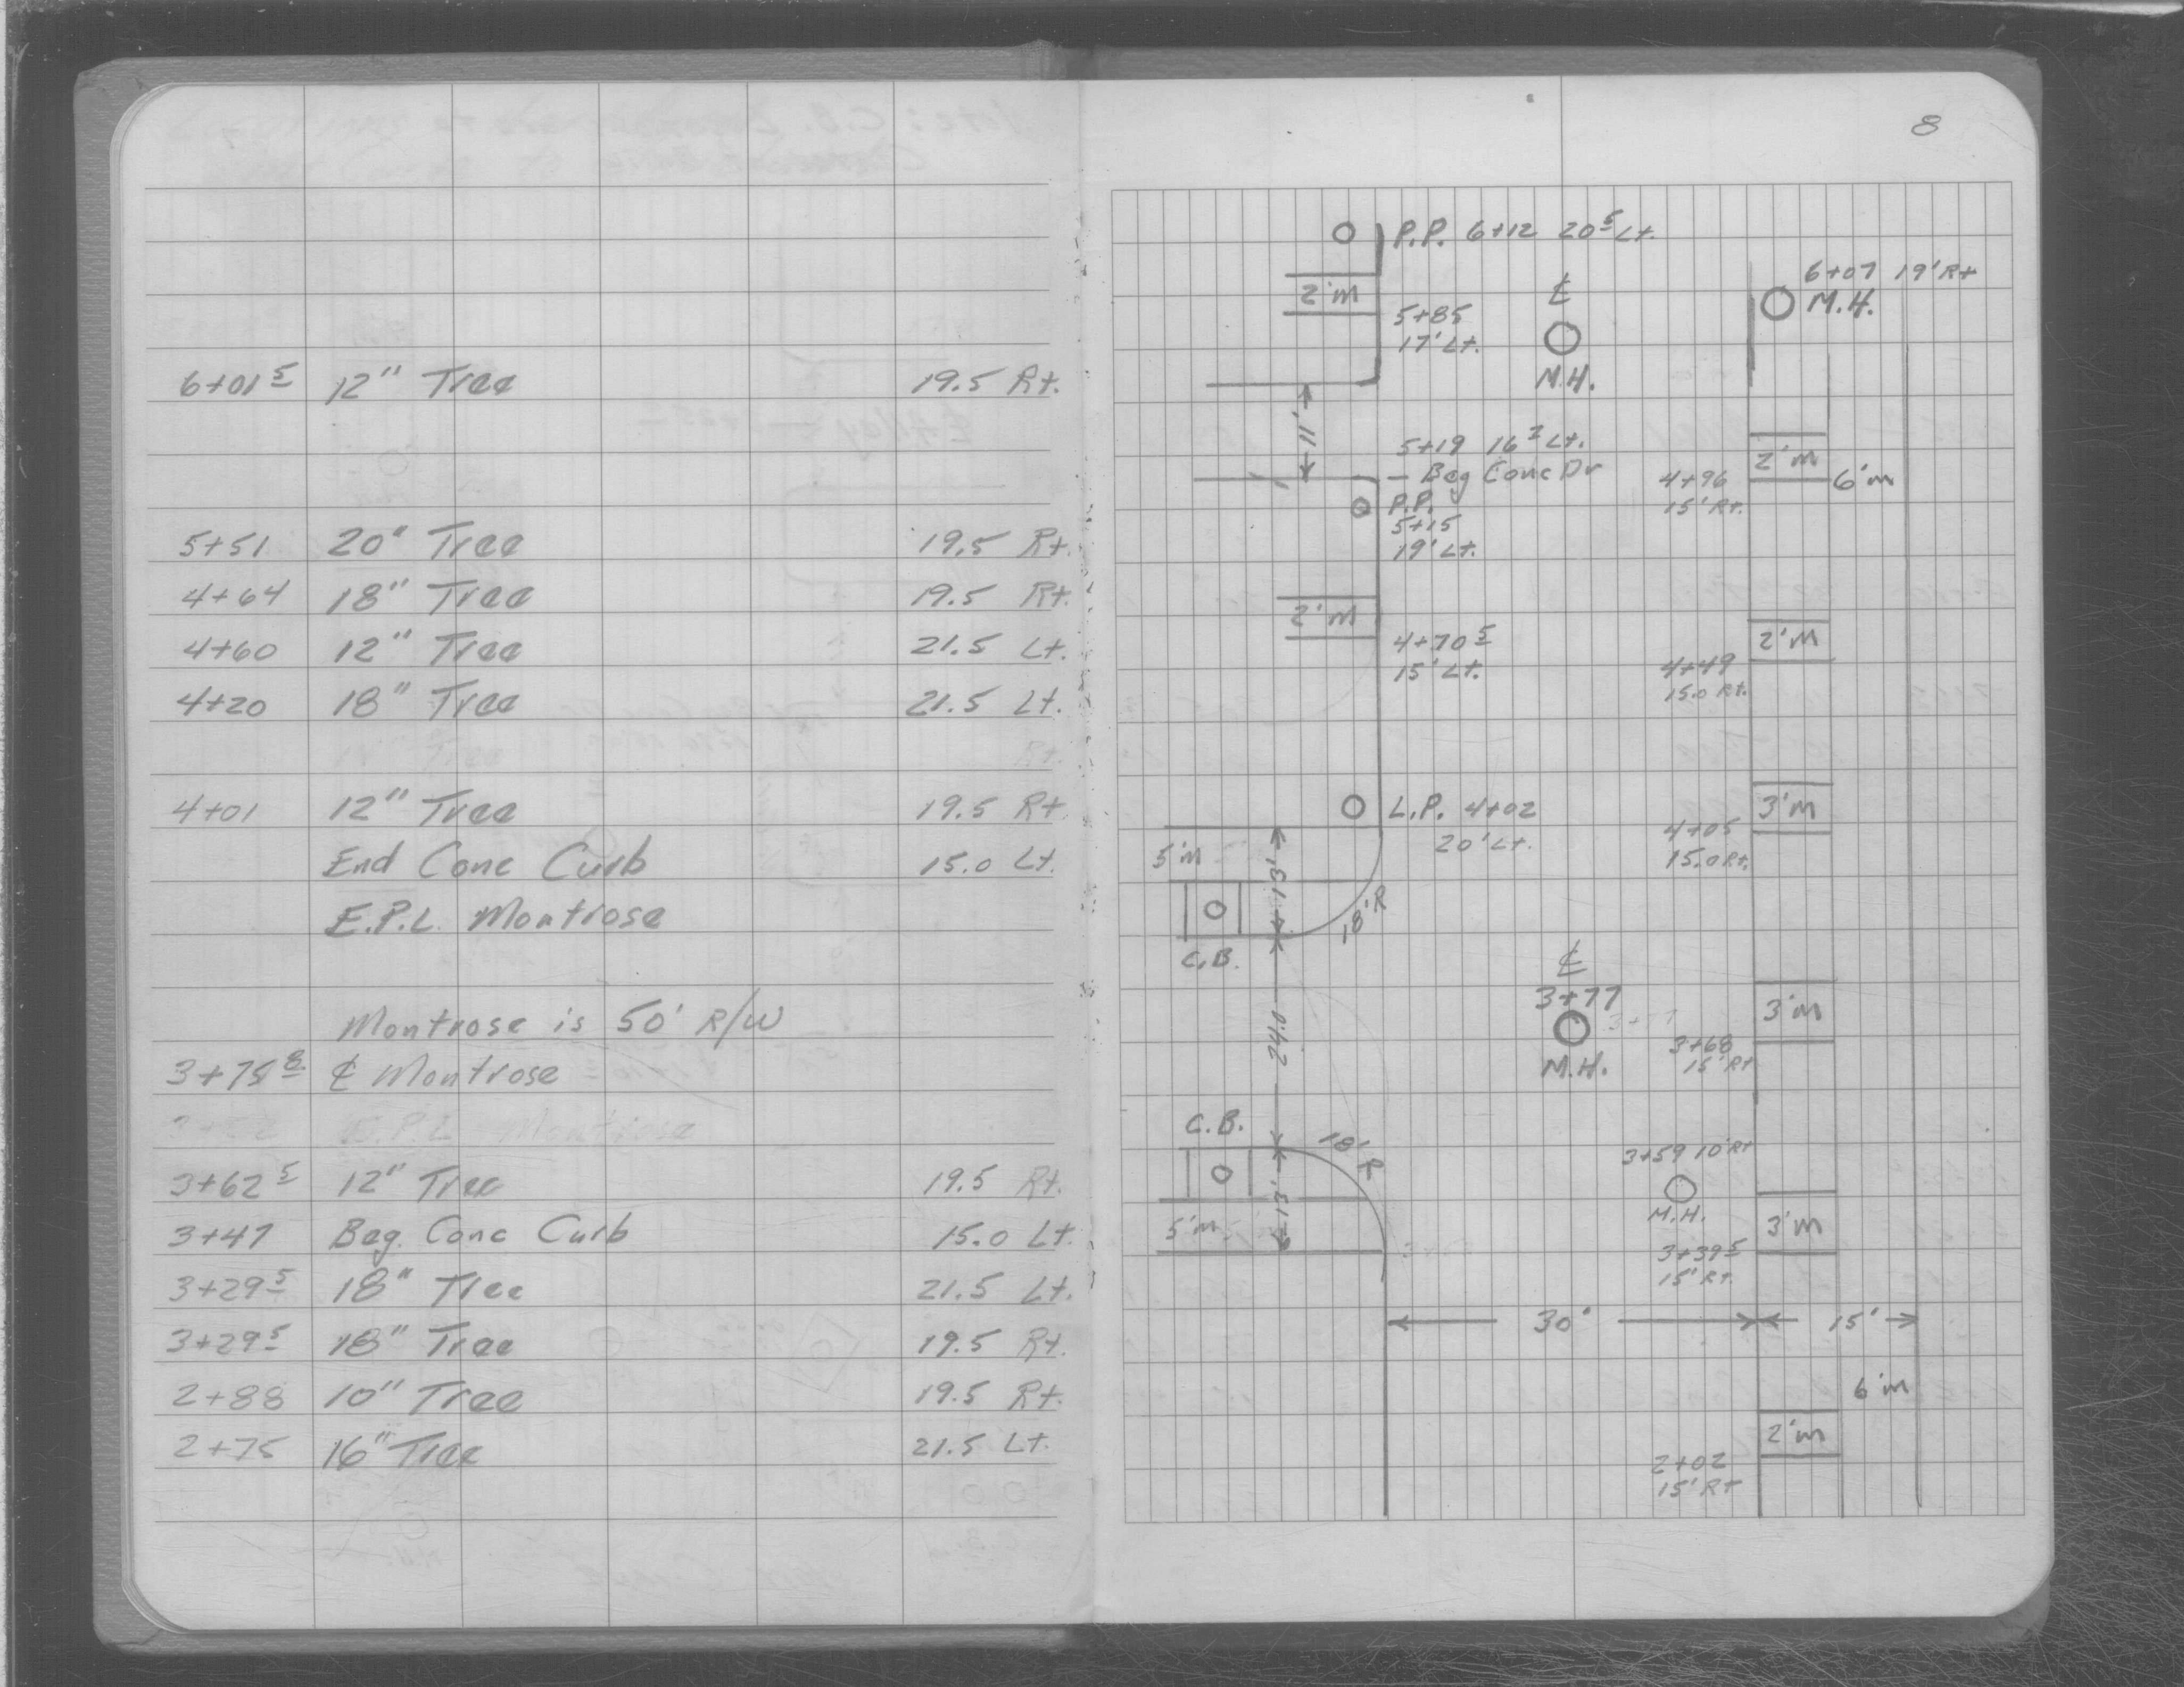 6+01⁵ 12" Tree 19.5 Rt.
5+51 20" Tree 19.5 Rt.
4+64 18" Tree 19.5 Rt.
4+60 12" Tree 21.5 Lt.
4+20 18" Tree 21.5 Lt.
4+01 12" Tree 19.5 Rt.
End Conc Curb 15.0 Lt.
E.P.L. Montrose
Montrose is 50' R/W
3+75⁸ ℄ Montrose
3+62⁵ 12" Tree 19.5 Rt.
3+47 Beg. Conc Curb 15.0 Lt.
3+29⁵ 18" Tree 21.5 Lt.
3+29⁵ 18" Tree 19.5 Rt.
2+88 10" Tree 19.5 Rt.
2+75 16" Tree 21.5 Lt.
8
P.P. 6+12 20⁵ Lt.
6+07 19' Rt
M.H.
2'm
5+85
17' Lt.
℄
M.H.
11'
5+19 16² Lt.
- Beg Conc Dr
P.P.
5+15
19' Lt.
4+96
15' Rt.
2'm
6'm
2'm
4+70⁵
15' Lt.
4+49
15.0 Rt.
2'm
L.P. 4+02
20' Lt.
4+05
15.0 Rt.
3'm
5'm
13'
18'R
C.B.
24.0
℄
3+77
M.H.
3+68
15' Rt
3'm
C.B.
18' R
13'
5'm
3+59 10' Rt
M.H.
3+39⁵
15' Rt.
3'm
30'
15'
6'm
2'm
2+02
15' Rt